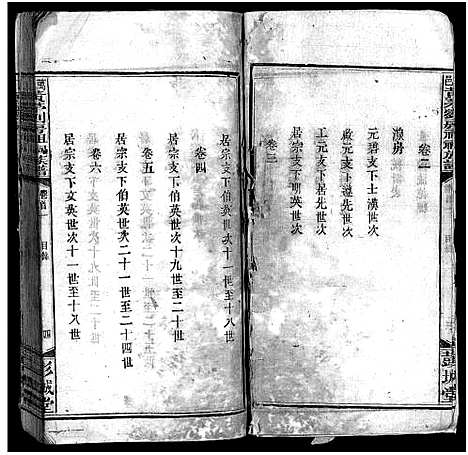 卷二
漢房
元碧支下士漢世次
政元支下逵先世次
工元支下居先世次
居宗支下朝英世次
卷三
卷四
居宗支下伯英世次十一世至十八世
居宗支下伯英世次十九世至二十世
卷五
居宗支下伯英世次二十一世至二十四世
卷六
居宗支下文英世次十一世至十八世
目錄
四
彭城堂
彭城堂